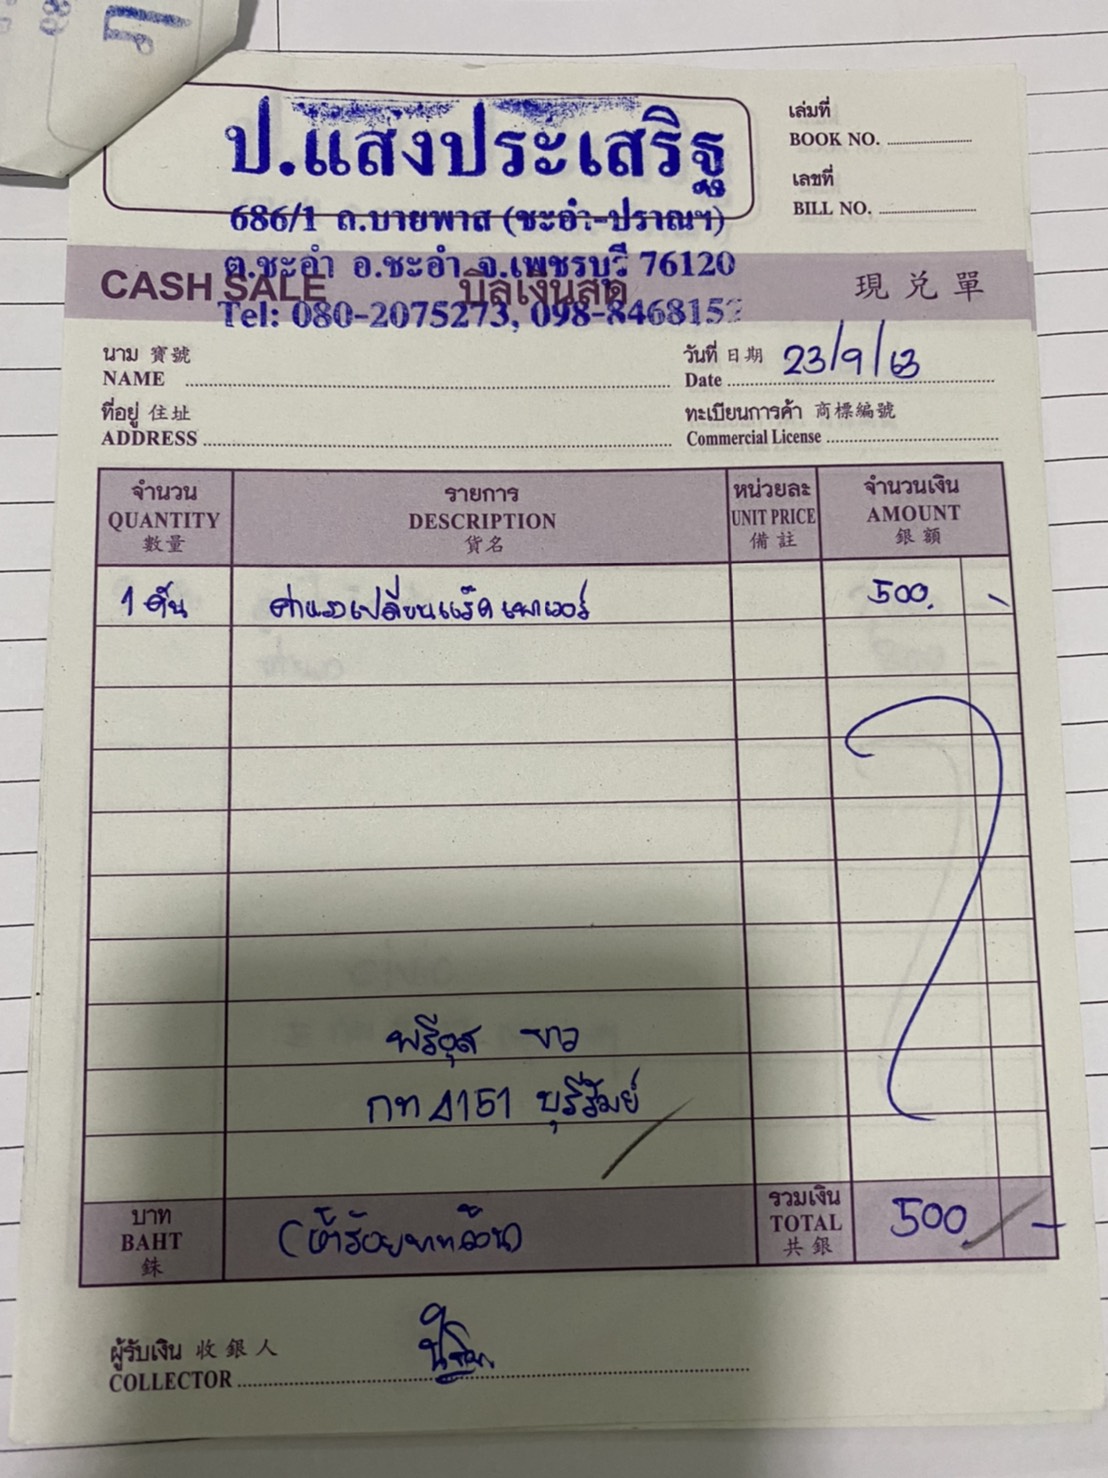 ป.แสงประเสริฐ
686/1 ถ.บายพาส (ชะอำ-ปราณฯ)
ต.ชะอำ อ.ชะอำ จ.เพชรบุรี 76120
Tel: 080-2075273, 098-8468152
เล่มที่
BOOK NO.
เลขที่
BILL NO.
CASH SALE บิลเงินสด 現兌單
นาม 寶號
NAME
วันที่ 日期 23/9/63
Date
ที่อยู่ 住址
ADDRESS
ทะเบียนการค้า 商標編號
Commercial License
จำนวน รายการ หน่วยละ จำนวนเงิน
QUANTITY DESCRIPTION UNIT PRICE AMOUNT
數量 貨名 備註 銀額
1 คัน ค่าแรงเปลี่ยนแร็คเพาเวอร์ 500. -
พรีอุส ขาว
กท 4151 บุรีรัมย์
บาท (ห้าร้อยบาทถ้วน) รวมเงิน 500 -
BAHT TOTAL
銖 共銀
ผู้รับเงิน 收銀人
COLLECTOR